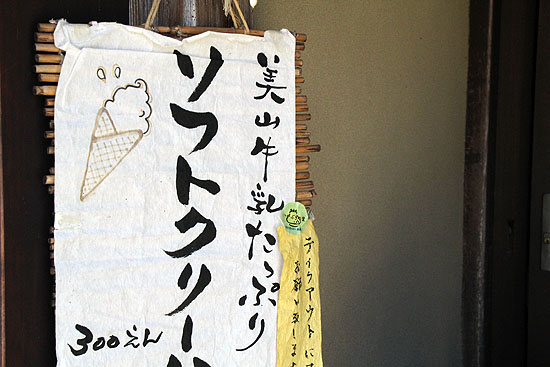 美山牛乳たっぷり
ソフトクリー
300えん
テイクアウトに
お願い致しま